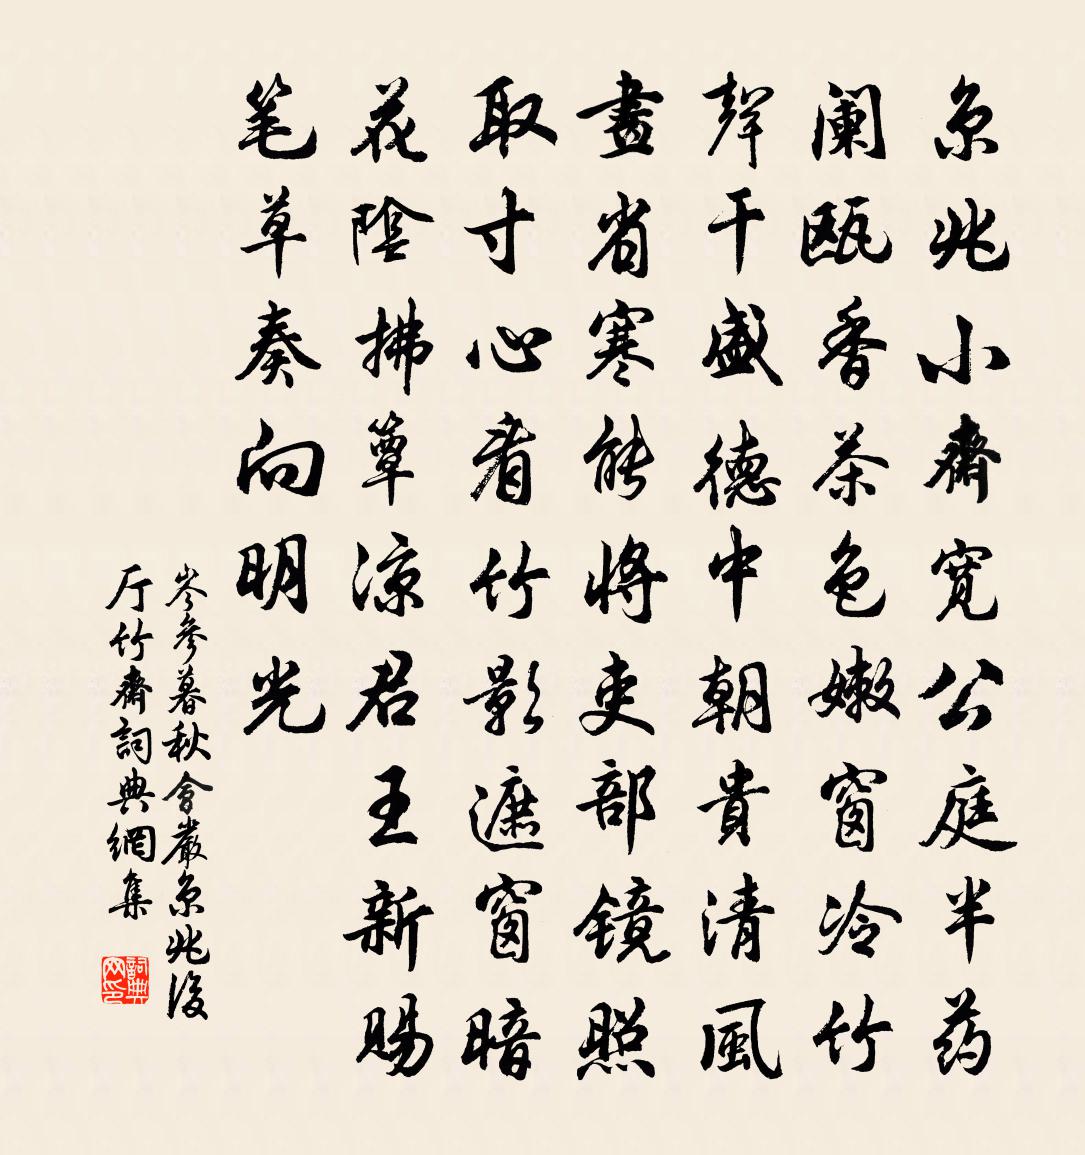 京兆小齋寬公庭半药
阑甌香茶色嫩窗冷竹
聲干盛德中朝貴清風
畫省寒能將吏部鏡照
取寸心看竹影遮窗暗
花陰拂簟凉君王新賜
笔草奏向明光
岑參暮秋會嚴京兆後
厅竹齋詞典網集
詞典网印